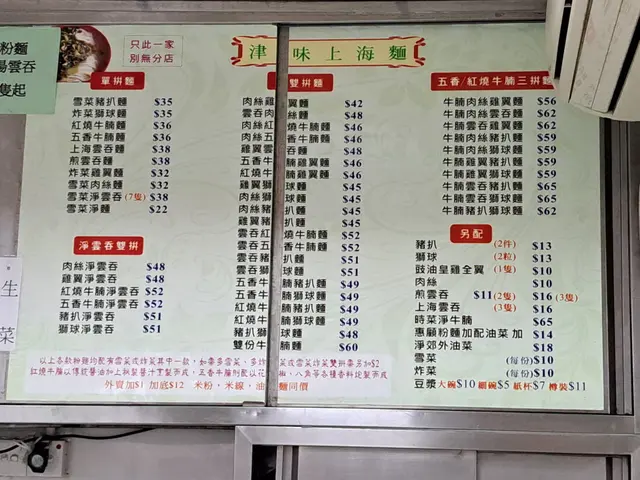 粉麵
湯雲吞
隻起
只此一家
別無分店
津味上海麵
單拼麵
雪菜豬扒麵 $35
炸菜獅球麵 $35
紅燒牛腩麵 $36
五香牛腩麵 $36
上海雲吞麵 $38
煎雲吞麵 $38
炸菜雞翼麵 $32
雪菜肉絲麵 $32
雪菜淨雲吞(7隻) $38
雪菜淨麵 $22
淨雲吞雙拼
肉絲淨雲吞 $48
雞翼淨雲吞 $48
紅燒牛腩淨雲吞 $52
五香牛腩淨雲吞 $52
豬扒淨雲吞 $51
獅球淨雲吞 $51
雙拼麵
肉絲雞翼麵 $42
雲吞肉絲麵 $48
肉絲紅燒牛腩麵 $46
肉絲五香牛腩麵 $46
雞翼雲吞麵 $48
五香牛腩雞翼麵 $46
紅燒牛腩雞翼麵 $46
雞翼獅球麵 $45
肉絲獅球麵 $45
肉絲豬扒麵 $45
雞翼豬扒麵 $45
雲吞紅燒牛腩麵 $52
雲吞五香牛腩麵 $52
雲吞豬扒麵 $51
雲吞獅球麵 $51
五香牛腩豬扒麵 $49
五香牛腩獅球麵 $49
紅燒牛腩豬扒麵 $49
紅燒牛腩獅球麵 $49
雙份牛腩麵 $60
五香/紅燒牛腩三拼麵
牛腩肉絲雞翼麵 $56
牛腩肉絲雲吞麵 $62
牛腩雲吞雞翼麵 $62
牛腩肉絲豬扒麵 $59
牛腩肉絲獅球麵 $59
牛腩雞翼豬扒麵 $59
牛腩雞翼獅球麵 $59
牛腩雲吞豬扒麵 $65
牛腩雲吞獅球麵 $65
牛腩豬扒獅球麵 $62
另配
豬扒 (2件) $13
獅球 (2粒) $13
豉油皇雞全翼 (1隻) $10
肉絲 $10
煎雲吞 $11(2隻) $16(3隻)
上海雲吞 (3隻) $16
時菜淨牛腩 $65
惠顧粉麵加配油菜 加 $14
淨郊外油菜 $18
雪菜 (每份)$10
炸菜 (每份)$10
豆漿 大碗$10 細碗$5 紙杯$7 樽裝$11
外賣加$1 加底$12 米粉，米線，油麵同價
生
菜